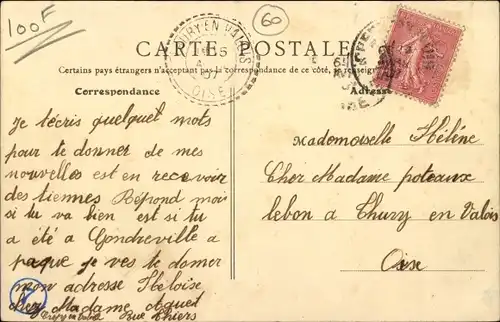 100F
60
CARTE POSTALE
Certains pays étrangers n'acceptant pas la correspondance de ce côté, se renseigner
Correspondance
Adresse
THURY EN VALOIS
OISE
Je técris quelquet mots
pour te donner de mes
nouvelles est en recevoir
des tiennes Répond moi
si tu va bien est si tu
a été a Gondreville a
paque je ves te damer
mon adresse Héloise
chez Madame
Rue Thiers
Mademoiselle Hélène
Cher Madame poteaux
lebon a Thury en Valois
Oise